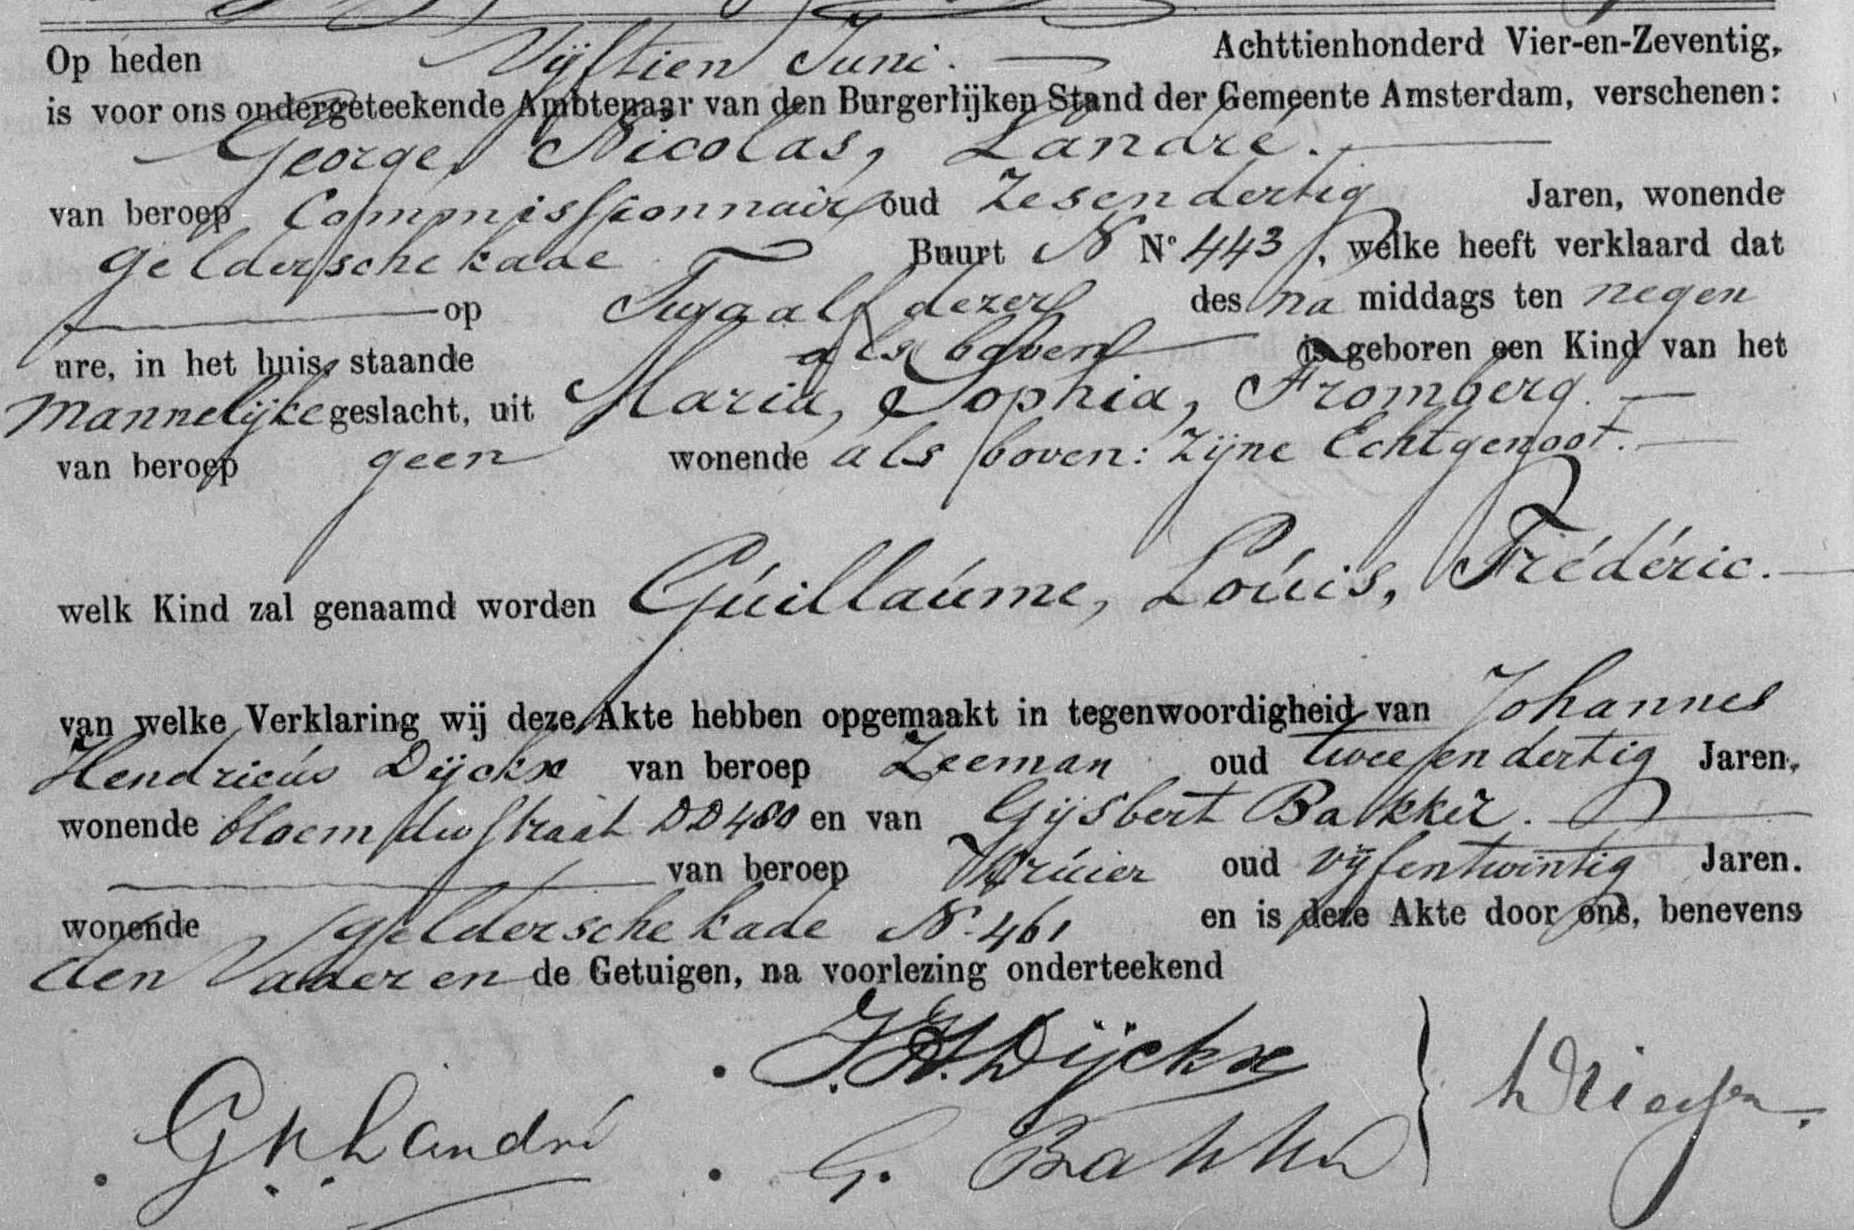 Op heden Vijftien Juni. Achttienhonderd Vier-en-Zeventig,
is voor ons ondergeteekende Ambtenaar van den Burgerlijken Stand der Gemeente Amsterdam, verschenen:
George, Nicolas, Landré.
van beroep Commissionnair oud Zesendertig Jaren, wonende
Geldersche kade Buurt N N° 443, welke heeft verklaard dat
op Twaalf dezer des na middags ten negen
ure, in het huis, staande als boven is geboren een Kind van het
Mannelijke geslacht, uit Maria, Sophia, Fromberg.
van beroep geen wonende als boven: Zijne Echtgenoot.
welk Kind zal genaamd worden Gúillaúme, Loúis, Frédéric.
van welke Verklaring wij deze Akte hebben opgemaakt in tegenwoordigheid van Johannes
Hendricús Dijckx van beroep Zeeman oud twee en dertig Jaren,
wonende DD 480 en van Gijsbert Bakker.
van beroep Krúier oud vijfentwintig Jaren.
wonende Geldersche kade N. 461 en is deze Akte door ons, benevens
den Vader en de Getuigen, na voorlezing onderteekend
J.H. Dijckx
G N Landré
G. Bakker